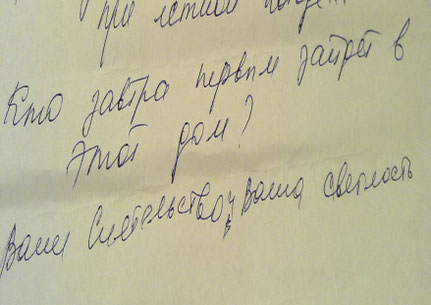 при летней
Кто завтра первым зайдёт в
этот дом?
Ваши Сиятельство, Ваша светлость